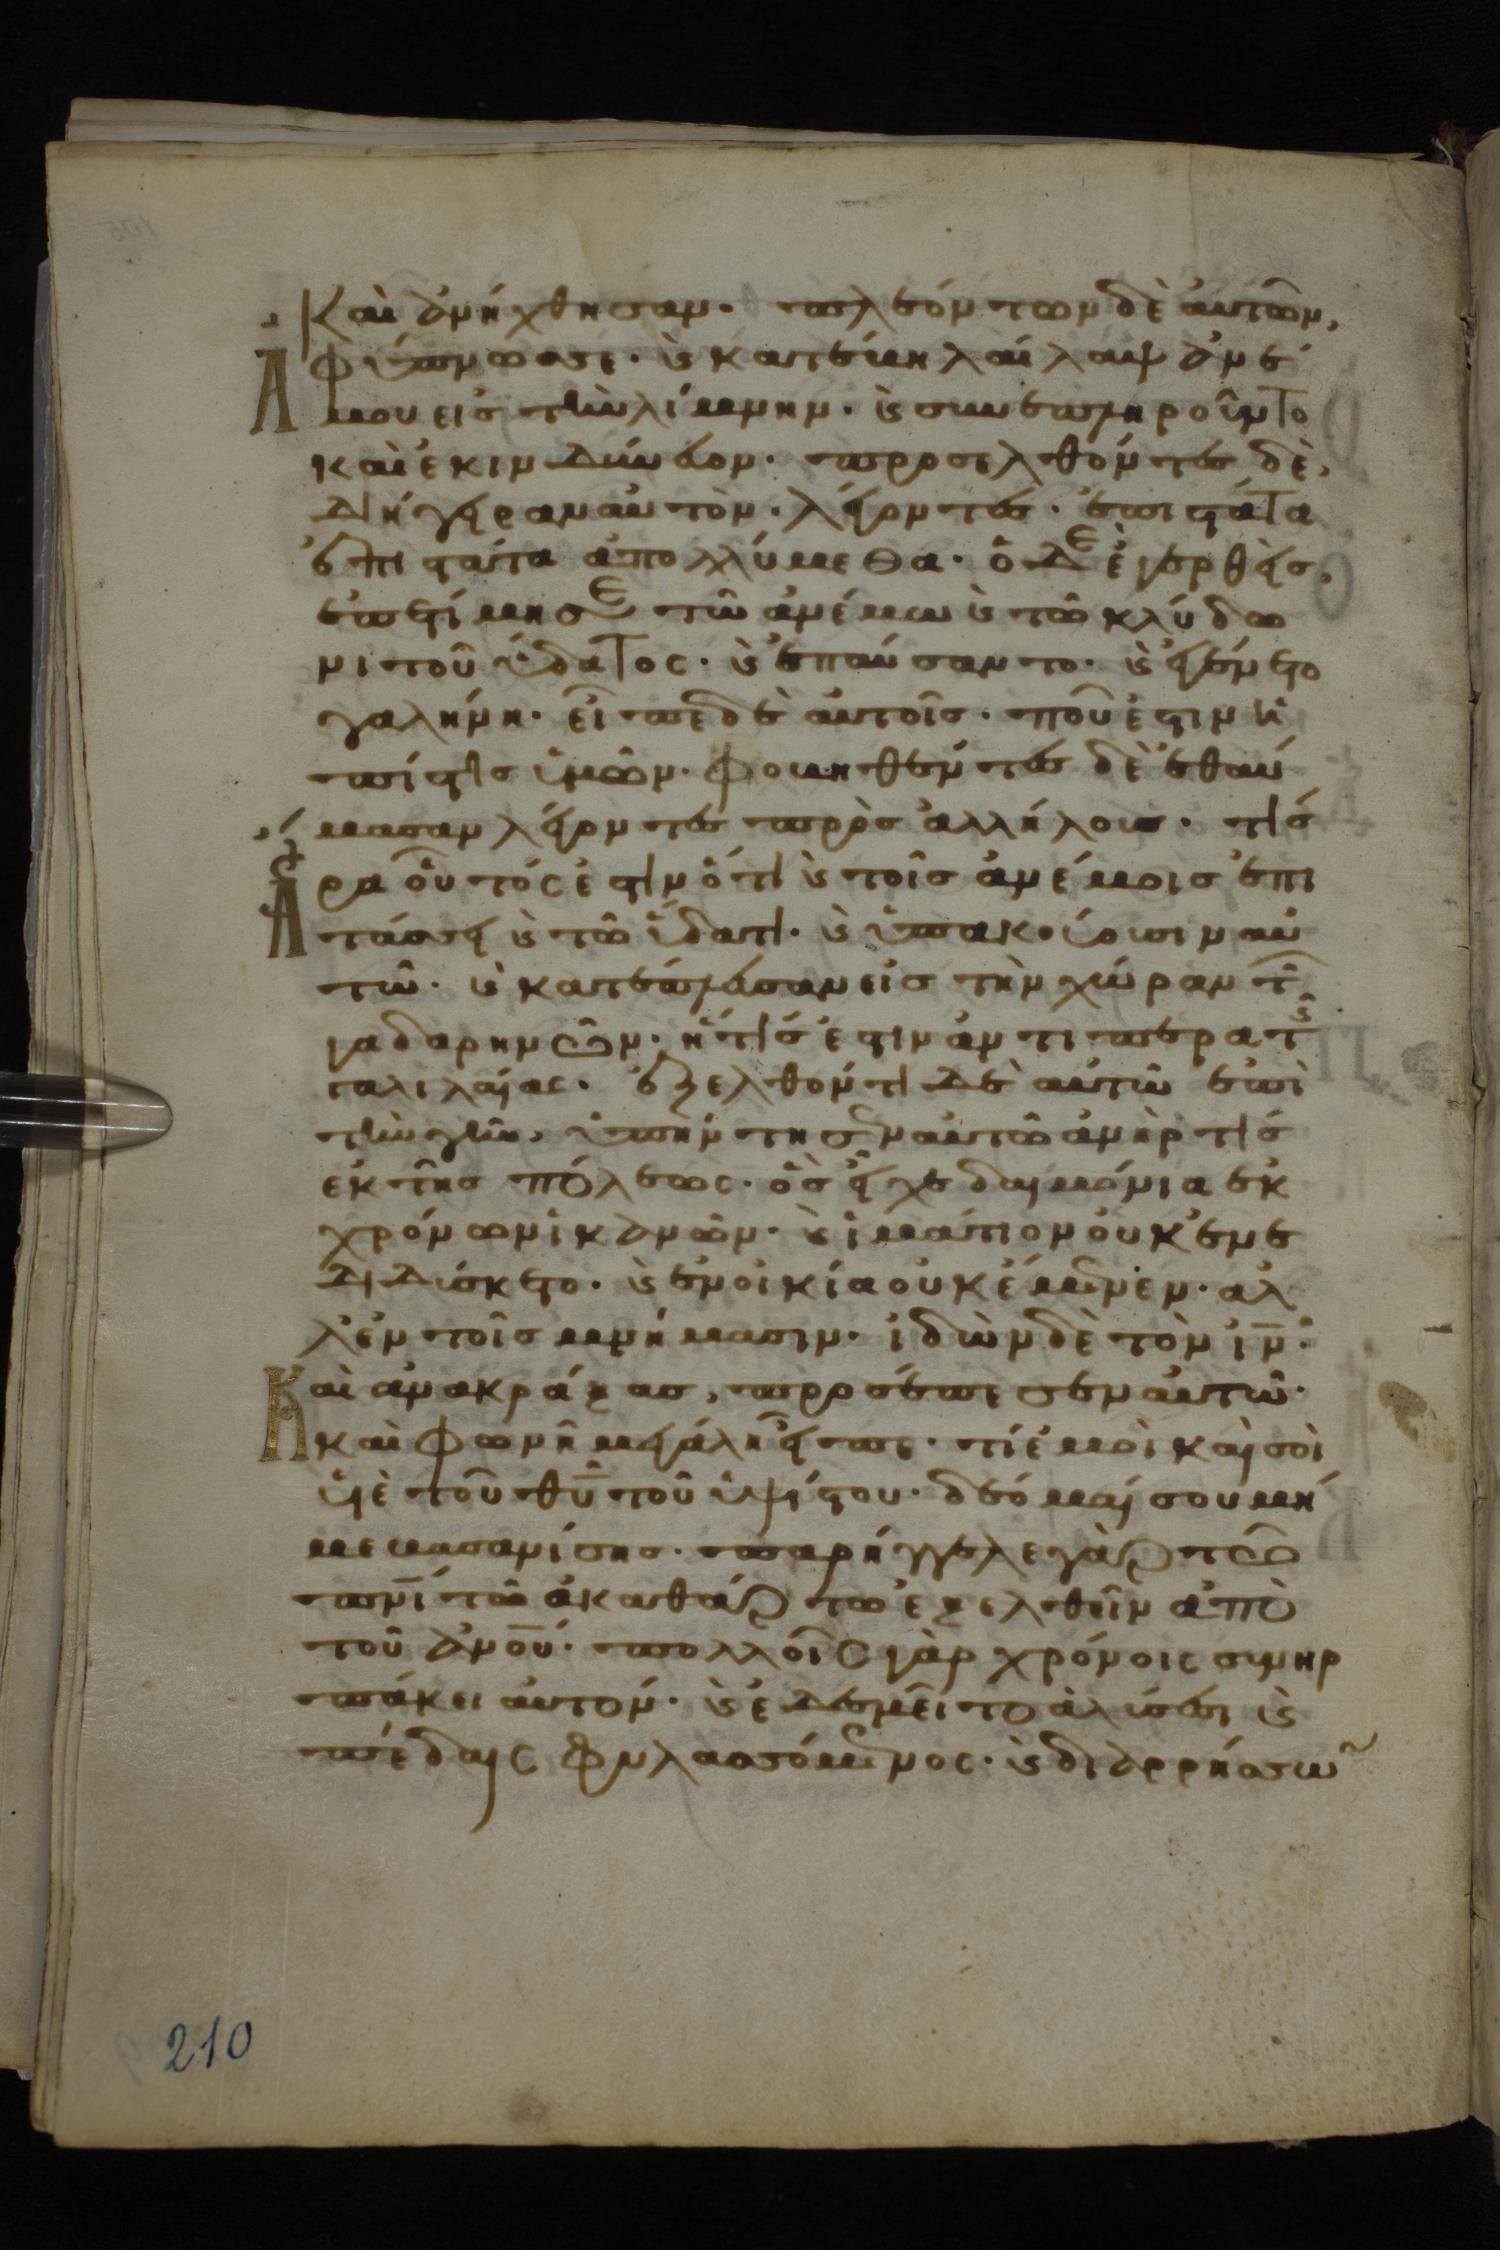 Καὶ ἀνήχθησαν. πλεόντων δὲ αὐτῶν,
Ἀφύπνωσε. ϗ κατέβη λαῖλαψ ἀνέ
μου εἰς τὴν λίμνην. ϗ συνεπληροῦντο
καὶ ἐκινδύνευον. προσελθόντες δὲ,
διήγειραν αὐτὸν. λέγοντες. ἐπιστάτα
ἐπιστάτα ἀπολλύμεθα. ὁ δὲ ἐγερθεὶς,
ἐπετίμησε τῶ ἀνέμω ϗ τῶ κλύδω
νι τοῦ ὕδατος. ϗ ἐπαύσαντο. ϗ ἐγένετο
γαλήνη. εἶπε δὲ αὐτοῖς. ποῦ ἐστιν ἡ
πίστις ὑμῶν. φοβηθέντες δὲ ἐθαύ
μασαν λέγοντες πρὸς ἀλλήλους. τίς
Ἄρα οὗτός ἐστιν ὅτι ϗ τοῖς ἀνέμοις ἐπι
τάσσει ϗ τῶ ὕδατι. ϗ ὑπακούουσιν αὐ
τῶ. ϗ κατέπλευσαν εἰς τὴν χώραν τῶν
γαδαρηνῶν. ἥτις ἐστιν ἀντιπέρα τῆς
γαλιλαίας. ἐξελθόντι δὲ αὐτῶ ἐπὶ
τὴν γῆν, ὑπήντησεν αὐτῶ ἀνήρ τίς
ἐκ τῆς πόλεως. ὃς εἶχε δαιμόνια ἐκ
χρόνων ἱκανῶν. ϗ ἱμάτιον οὐκ ἐνε
διδύσκετο. ϗ ἐν οἰκία οὐκ ἔμενεν. ἀλ
λ' ἐν τοῖς μνήμασιν. ἰδὼν δὲ τὸν ιν̅.
Καὶ ἀνακράξας, προσέπεσεν αὐτῶ.
καὶ φωνῆ μεγάλη εἶπε. τί ἐμοὶ καὶ σοὶ
υἱὲ τοῦ θυ̅ τοῦ ὑψίστου. δέομαί σου μή
με βασανίσης. παρήγγελε γὰρ τῶ
πνι̅ τῶ ἀκαθάρτω ἐξελθεῖν ἀπὸ
τοῦ ἀνου̅. πολλοῖς γὰρ χρόνοις συνηρ
πάκει αὐτόν. ϗ ἐδεσμεῖτο ἁλύσεσι ϗ
πέδαις φυλασσόμενος. ϗ διαρρήσσων
210